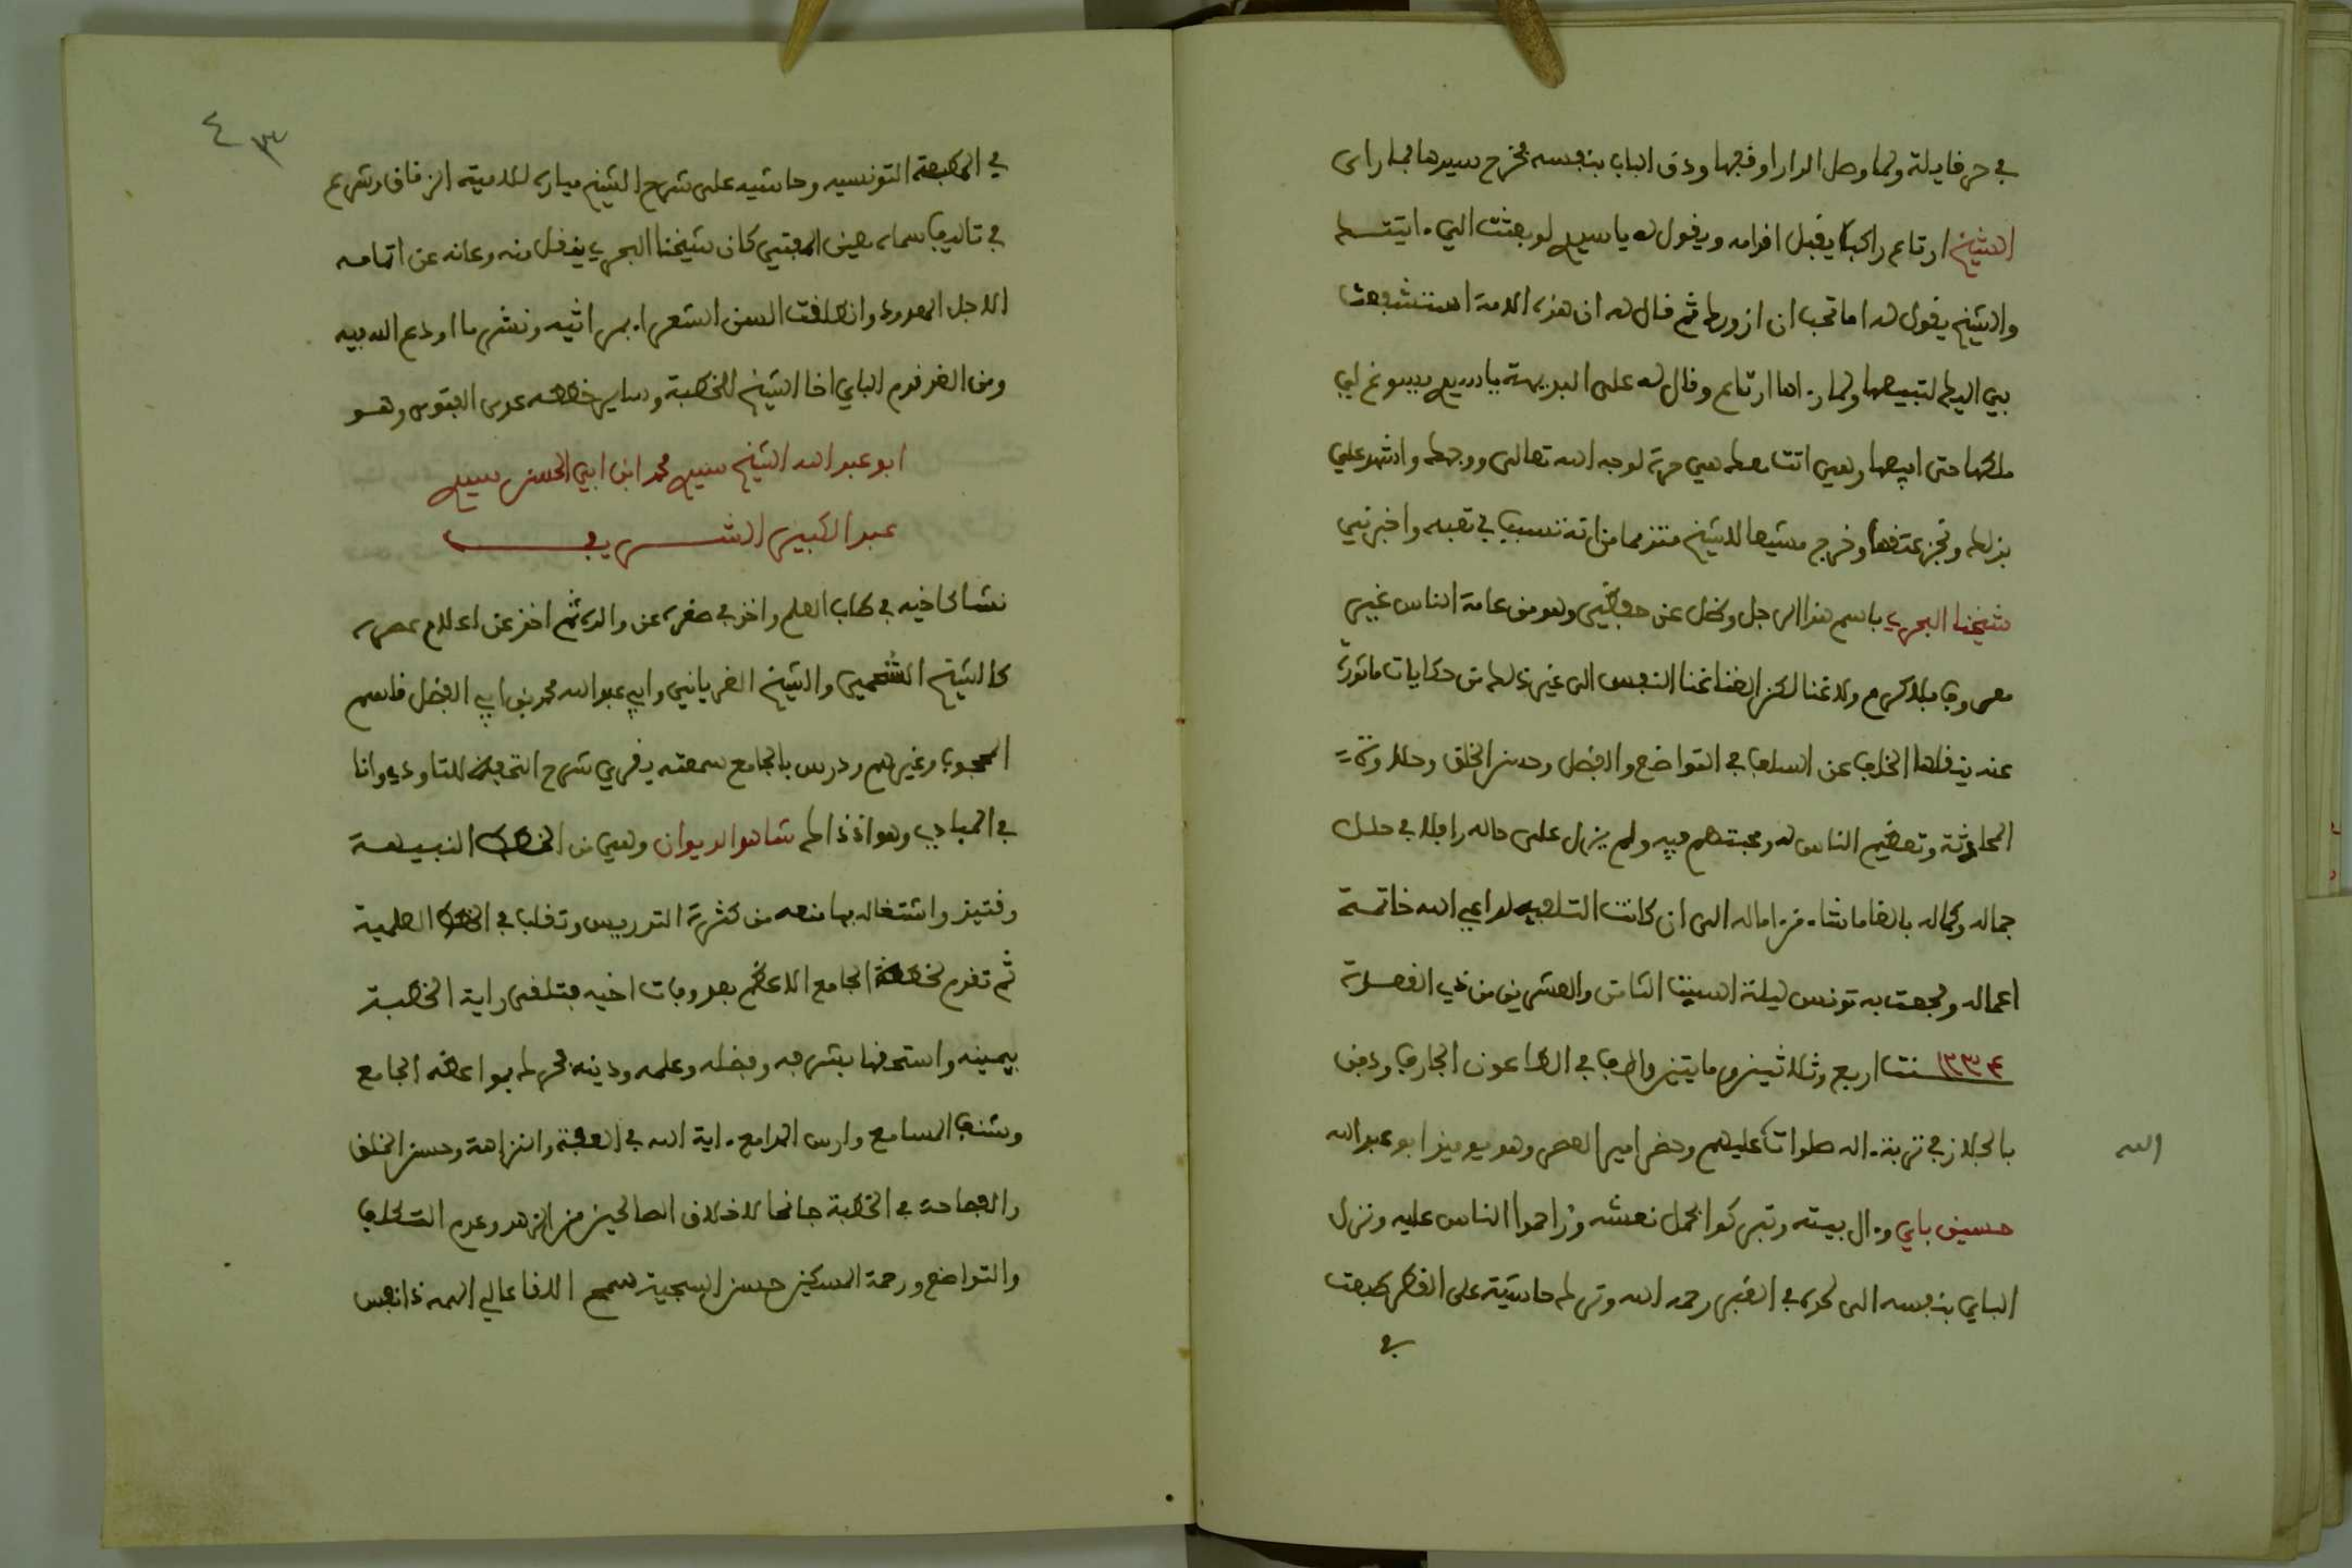 في حر قايلة ولما وصل الدار اوقفها ودق الباب بنفسه فخرج سيدها فلما راى
الشيخ ارتاع راكبا يقبل اقدامه ويقول له يا سيدي لو بعثت الي ءاتيتك
والشيخ يقول له اما تحب ان ازورك ثم قال له ان هذه الامة استشفعت
بي اليك لتبيعها ولما رءاها ارتاع وقال له على البديهة يا سيدي يسوغ لي
ملكها حتى ابيعها وهي اتت معك هي حرة لوجه الله تعالى ووجهك واشهد علي
بذلك ونجز عتقها وخرج مشيعا للشيخ متندما من انه تسبب في تعبه واخبرني
شيخنا البحري باسم هذا الرجل وكل عن حفظي وهو من عامة الناس غير
معروف بالكرم ولا غنا لكن الغنا غنا النفس الى غير ذلك من حكايات ماثورة
عنه ينقلها الخلف عن السلف في التواضع والفضل وحسن الخلق وحلاوة
المحادثة وتعظيم الناس له ومحبتهم فيه ولم يزل على حاله رافلا في حلل
جماله وكماله بالغا ما شاء من اماله الى ان كانت التلبية لداعي الله خاتمة
اعماله وفجعت به تونس ليلة السبت الثامن والعشرين من ذي القعدة
١٢٣٤ سنة اربع وثلاثين ومايتين والف في الطاعون الجارف ودفن
بالجلاز في تربة ءاله صلوات الله عليهم وحضر امير العصر وهو يوميذ ابو عبد الله
حسين باي وءال بيته وتبركوا بحمل نعشه وزاحموا الناس عليه ونزل
الباي بنفسه الى لحده في القبر رحمه الله وترك حاشية على القطر طبعت
في
٤٣
في المطبعة التونسيه وحاشيه على شرح الشيخ ميارة للامية الزقاق وشرع
في تاليف سماه معين المفتي كان شيخنا البحري ينقل منه وعاقه عن اتمامه
الاجل المعدود وانطلقت السن الشعراء بمراثيه ونشر ما اودع الله فيه
ومن الغد قدم الباي اخا الشيخ للخطبة وساير خططه عدى الفتوى وهو
ابو عبد الله الشيخ سيدي محمد ابن ابي الحسن سيدي
عبد الكبير الشريف
نشا كاخيه في طلب العلم واخذ في صغره عن والده ثم اخذ عن اعلام عصره
كالشيخ الشحمي والشيخ الغرياني وابي عبد الله محمد بن ابي الفضل قاسم
المحجوب وغيرهم ودرس بالجامع سمعته يقري شرح التحفة للتاودي وانا
في المبادي وهو اذ ذاك شاهد الديوان وهي من الخطط النبيهة
وقتيذ واشتغاله بها منعه من كثرة التدريس وتقلب في الخطط العلمية
ثم تقدم لخطبة الجامع الاعظم بعد وفات اخيه فتلقى راية الخطبة
بيمينه واستحقها بشرفه وفضله وعلمه ودينه فحرك بمواعظه الجامع
وشنف المسامع وارسل المدامع ءاية الله في العفة والنزاهة وحسن الخلق
والفصاحة في الخطبة جانحا لاخلاق الصالحين من الزهد وعدم التكلف
والتواضع ورحمة المسكين حسن السجية سمح اللقا عالي الهمة ذا نفس